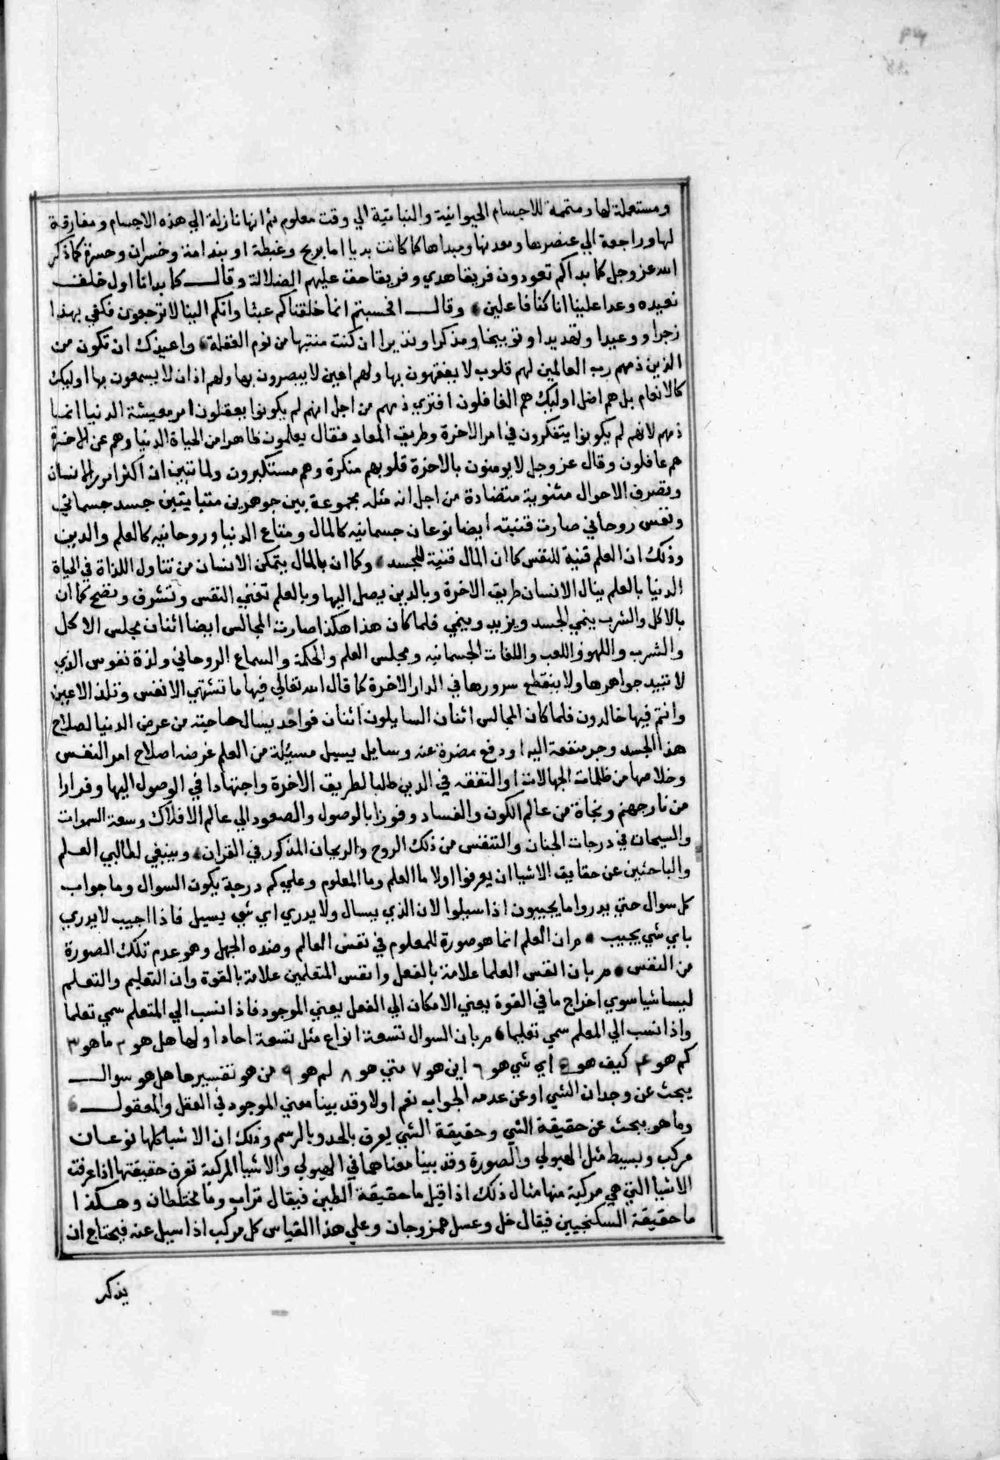 ومستعملة لها ومتممة للاجسام الحيوانية والنباتية الي وقت معلوم ثم انها نازلة الي هذه الاجسام ومفارقة
لها وراجعة الي عنصرها ومعدنها ومبداها كما كانت بديا اما بربح وغبطة او بندامة وخسران وحسرة كما ذكر
الله عز وجل كما بداكم تعودون فريقا هدي وفريقا حق عليهم الضلالة وقال كما بدانا اول خلق
نعيده وعدا علينا انا كنا فاعلين وقال افحسبتم انما خلقناكم عبثا وانكم الينا لا ترجعون فكفي بهذا
زجرا ووعيدا وتهديدا وتوبيخا ومذكرا ونذيرا ان كنت منتبها من نوم الغفلة واعيذك ان تكون من
الذين ذمهم رب العالمين لهم قلوب لا يفقهون بها ولهم اعين لا يبصرون بها ولهم اذان لا يسمعون بها اوليك
كالانعام بل هم اضل اوليك هم الغافلون افتري ذمهم من اجل انهم لم يكونوا يعقلون امر معيشة الدنيا انما
ذمهم لانهم لم يكونوا يتفكرون في امر الاخرة وطريق المعاد فقال يعلمون ظاهرا من الحياة الدنيا وهم عن الاخرة
هم غافلون وقال عز وجل لا يومنون بالاخرة قلوبهم منكرة وهم مستكبرون ولما تبين ان اكثر امور الانسان
وتصرف الاحوال مثنوية متضادة من اجل انه مثله مجموعة بين جوهرين متباينين جسد جسماني
ونفس روحاني صارت قنيته ايضا نوعان جسمانية كالمال ومتاع الدنيا وروحانية كالعلم والدين
وذلك ان العلم قنية للنفس كما ان المال قنية للجسد وكما ان بالمال يتمكن الانسان من تناول اللذاة في الحياة
الدنيا بالعلم ينال الانسان طريق الاخرة وبالدين يصل اليها وبالعلم تغني النفس وتشرف وتضح كما ان
بالاكل والشرب ينمي الجسد ويزيد ويبمي فلما كان هذا هكذا صارت المجالس ايضا اثنان مجلس الاكل
والشرب واللهو واللعب واللغات الجسمانية ومجلس العلم والحكمة والسماع الروحاني ولذة نفوس الذي
لا تبيد جواهرها ولا ينقطع سرورها في الدار الاخرة كما قال الله تعالي فيها ما تشتهي الانفس وتلذ الاعين
وانتم فيها خالدون فلما كان المجالس اثنان السايلون اثنان فواحد يسال حاجته من عرض الدنيا لصلاح
هذا الجسد وجر منفعة اليه او دفع مضرة عنه وسايل يسيل مسيلة من العلم غرضه اصلاح امر النفس
وخلاصها من ظلمات الجهالات او التفقه في الدين طلبا لطريق الاخرة واجتهادا في الوصول اليها وفرارا
من نار جهنم ونجاة من عالم الكون والفساد وفوزا بالوصول والصعود الي عالم الافلاك وسعة السموات
والسيحان في درجات الجنان والتنفس من ذلك الروح والريحان المذكور في القران وينبغي لطالبي العلم
والباحثين عن حقايق الاشيا ان يعرفوا اولا ما العلم وما المعلوم وعلي كم درجة يكون السوال وما جواب
كل سوال حتي يدروا ما يجيبون اذا سيلوا لان الذي يسال ولا يدري اي شي يسيل فاذا اجيب لا يدري
باي شي يجيب مر ان العلم انما هو صورة للمعلوم في نفس العالم وضده الجهل وهو عدم تلك الصورة
من النفس مر بان انفس العلما علامة بالفعل وانفس المتعلمين علامة بالقوة وان التعليم والتعلم
ليسا شيا سوي اخراج ما في القوة يعني الامكان الي الفعل يعني الموجود فاذا نسب الي المتعلم سمي تعلما
واذا نسب الي المعلم سمي تعليما مر بان السوال تسعة انواع مثل تسعة احاد اولها هل هو ٢ ما هو ٣
كم هو ۴ كيف هو ٥ اي شي هو ٦ اين هو ٧ متي هو ٨ لم هو ٩ من هو تفسيرها هل هو سوال
يبحث عن وجدان الشي او عن عدمه الجواب نعم او لا وقد بينا معني الموجود في العقل والمعقول
وما هو يبحث عن حقيقة الشي وحقيقة الشي يعرف بالحد وبالرسم وذلك ان الاشيا كلها نوعان
مركب وبسيط مثل الهيولي والصورة وقد بينا معناهما في الهيولي والاشيا المركبة تعرف حقيقتها اذا عرفت
الاشيا التي هي مركبة منها مثال ذلك اذا قيل ما حقيقة الطين فيقال تراب وما مختلطان وهكذا
ما حقيقة السكنجبين فيقال خل وعسل ممزوجان وعلي هذا القياس كل مركب اذا سيل عنه فيحتاج ان
يذكر